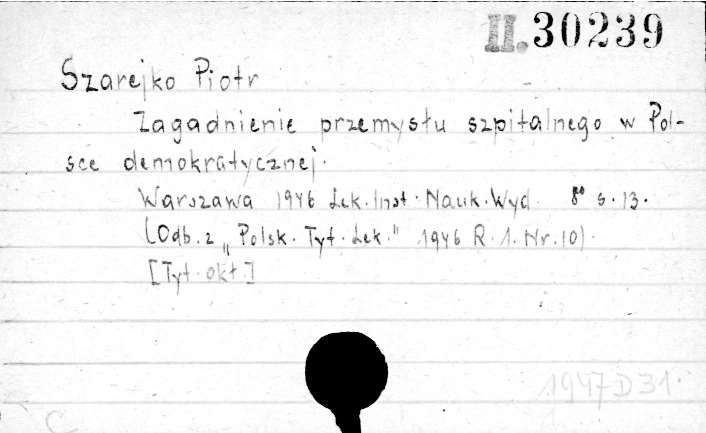 II.30239
Szarejko Piotr
Zagadnienie przemysłu szpitalnego w Pol-
sce demokratycznej.
Warszawa 1946 Lek. Inst. Nauk. Wyd. 8° s. 13.
(Odb. z „Polsk. Tyt. Lek." 1946 R. 1. Nr. 10).
[Tyt. okł.]
1947 D 31.
C